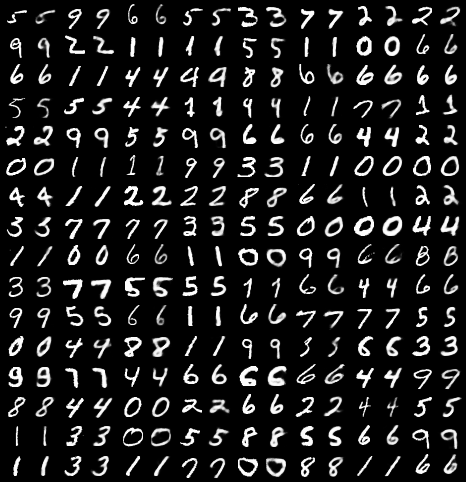 5 5 9 9 6 6 5 5 3 3 7 7 2 2 2 2
9 9 2 2 1 1 1 1 5 5 1 1 0 0 6 6
6 6 1 1 4 4 4 4 8 8 6 6 6 6 6 6
5 5 5 5 4 4 1 1 9 9 1 1 7 7 1 1
2 2 9 9 5 5 9 9 6 6 6 6 4 4 2 2
0 0 1 1 1 1 9 9 3 3 1 1 0 0 0 0
4 4 1 1 2 2 2 2 8 8 6 6 1 1 2 2
3 3 7 7 7 7 3 3 5 5 0 0 0 0 4 4
1 1 0 0 6 6 1 1 0 0 9 9 6 6 8 8
3 3 7 7 5 5 5 5 1 1 6 6 4 4 6 6
9 9 5 5 6 6 1 1 6 6 7 7 7 7 5 5
0 0 4 4 8 8 1 1 9 9 3 3 6 6 3 3
9 9 7 7 4 4 6 6 6 6 6 6 4 4 9 9
8 8 4 4 0 0 2 2 6 6 2 2 4 4 5 5
1 1 3 3 0 0 5 5 8 8 5 5 6 6 9 9
1 1 3 3 1 1 7 7 0 0 8 8 1 1 6 6